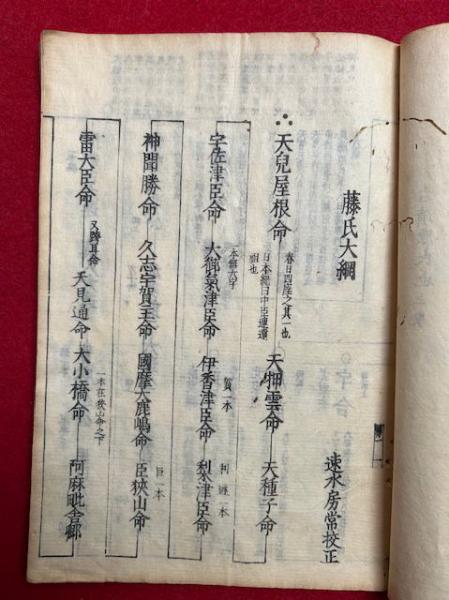 藤氏大綱
速水房常校正
天兒屋根命
春日四座之其一也
日本紀曰中臣連遠
祖也
天押雲命
天種子命
宇佐津臣命
大御氣津臣命
伊香津臣命
賀一本
梨津臣命
神聞勝命
久志宇賀主命
國摩大鹿嶋命
臣狹山命
巨一本
雷大臣命
又跨耳命
天見通命
大小橋命
一本在狹山命之下
阿麻毗舎卿